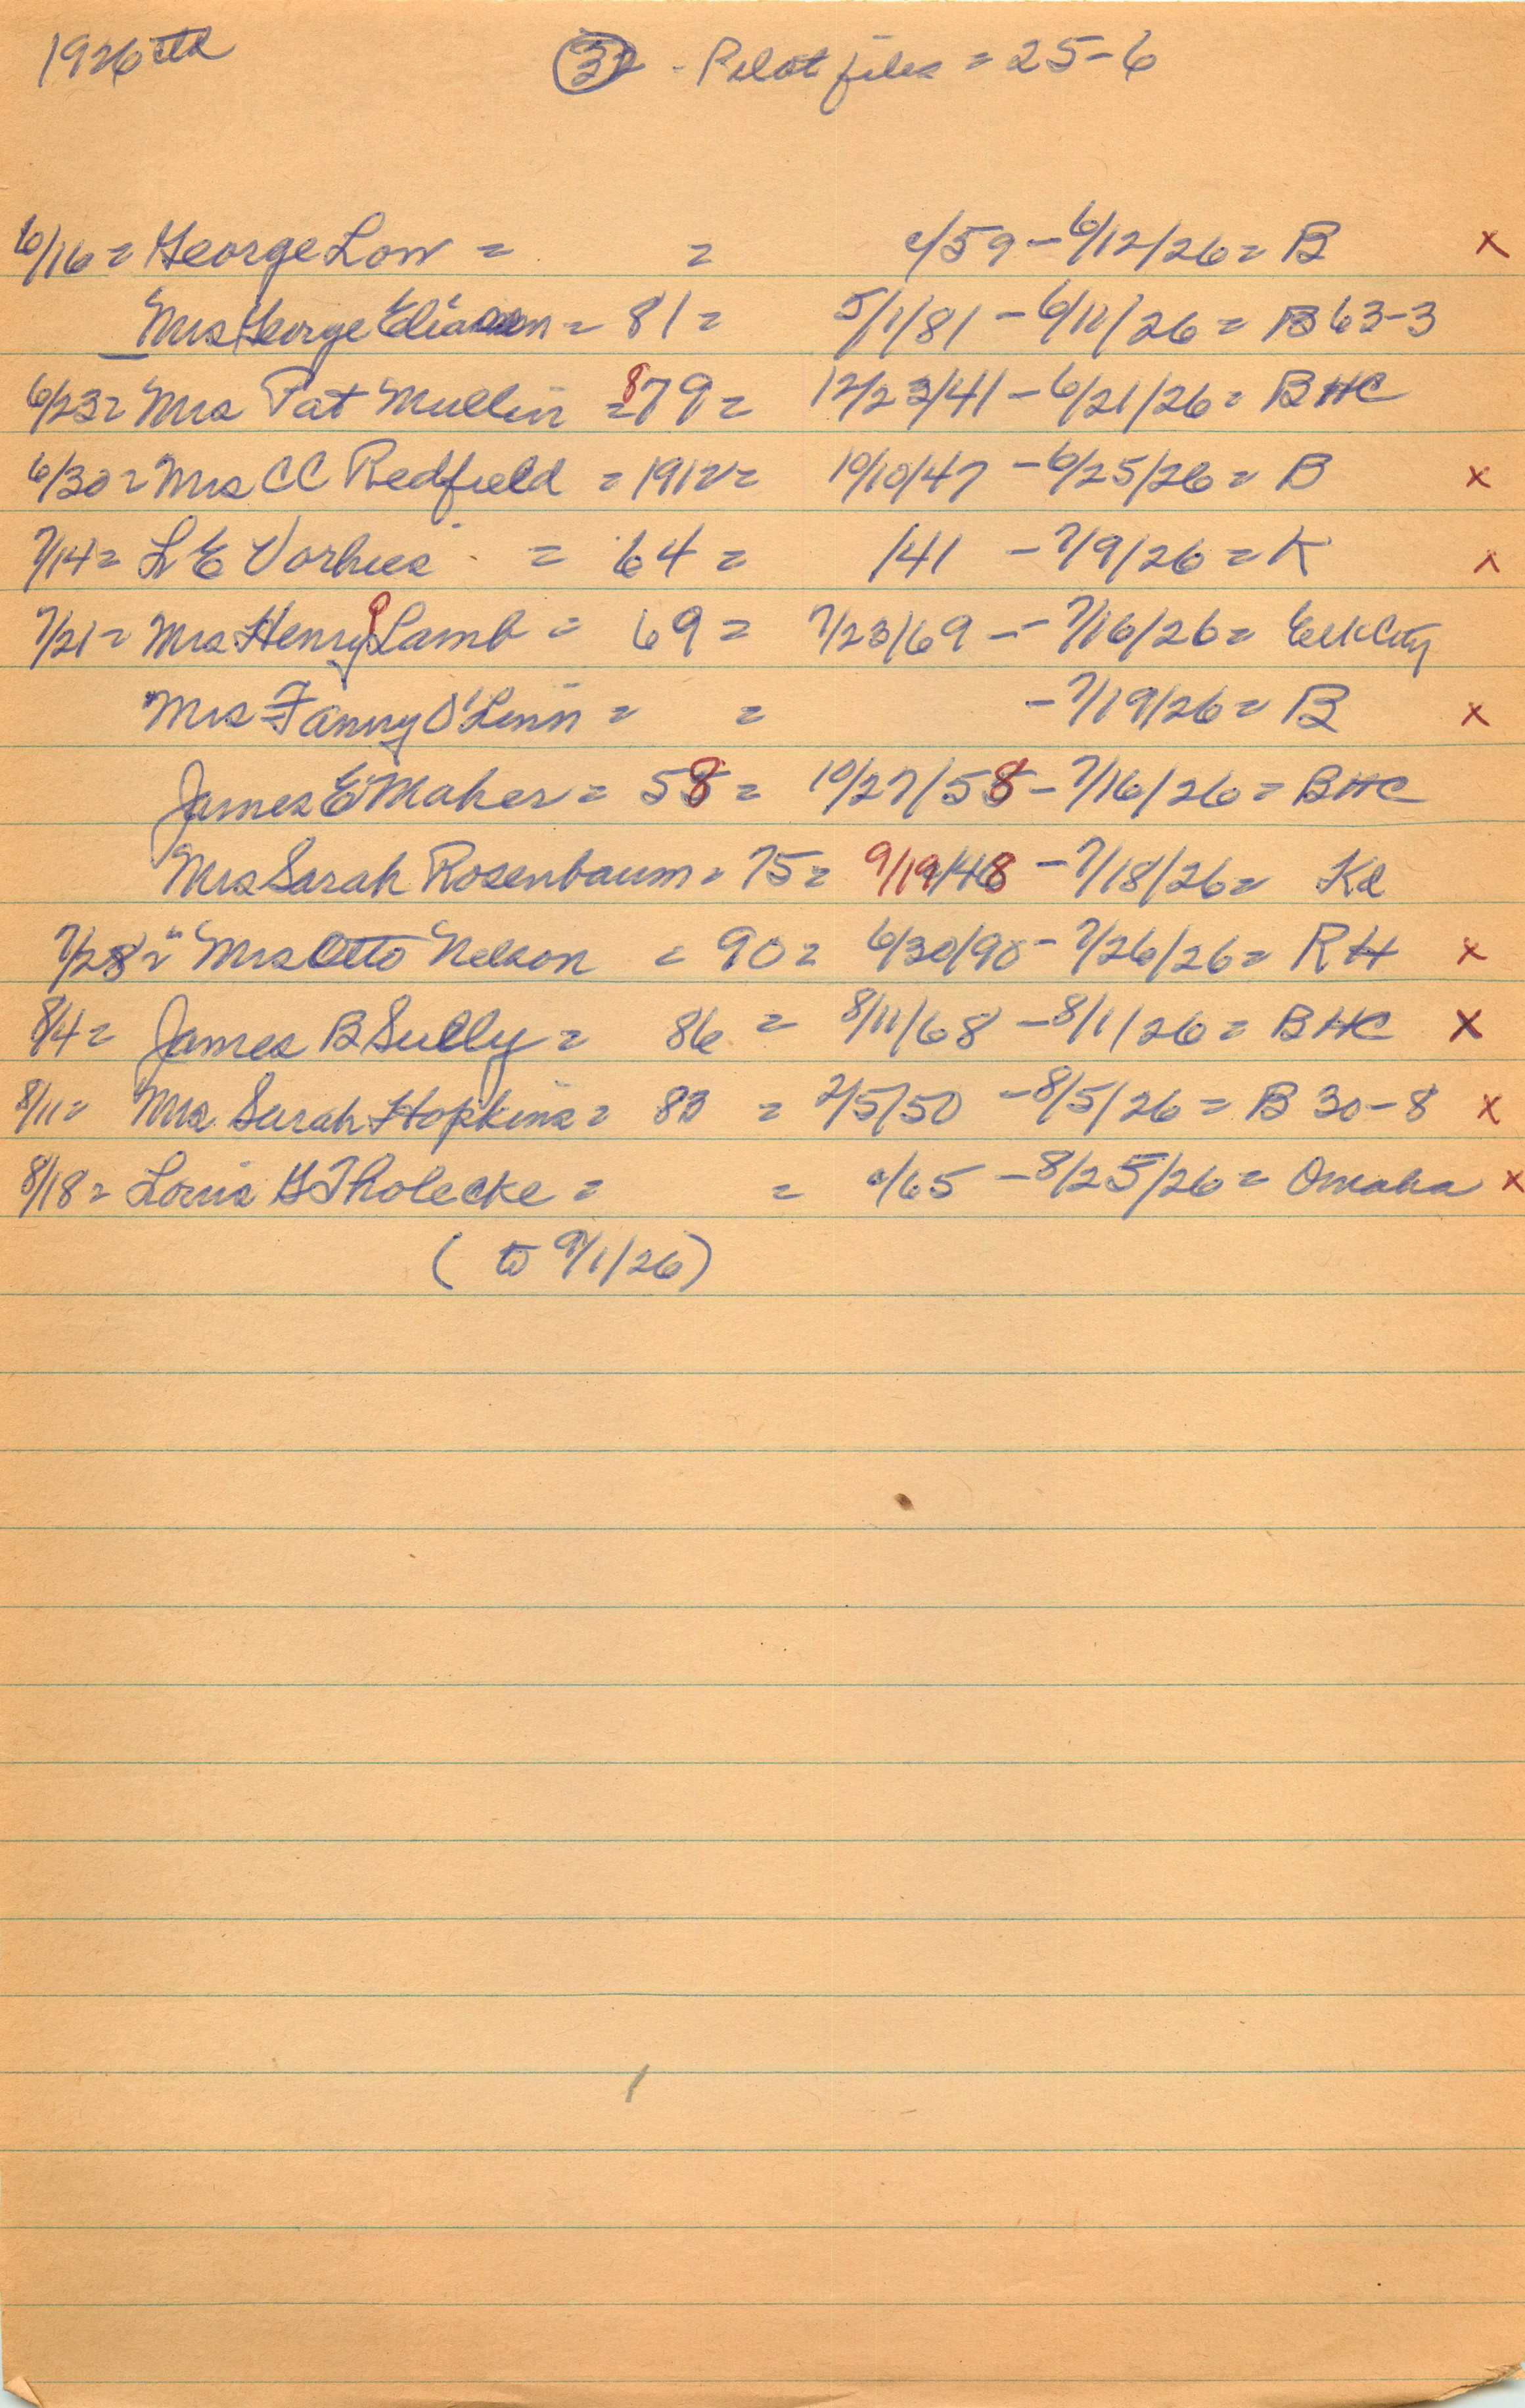 1926 ctd (32) - Pilot files = 25-6
6/16 = George Low = = c/59 - 6/12/26 = B x
Mrs George = 81 = 5/1/81 - 6/11/26 = B 63-3
6/23 = Mrs Pat Mullin = 879 = 12/23/41 - 6/21/26 = BHC
6/30 = Mrs CC Redfield = 1912 = 10/10/47 - 6/25/26 = B x
7/14 = L E Vorhees = 64 = /41 - 7/9/26 = K x
7/21 = Mrs Henry Lamb = 69 = 7/23/69 - 7/16/26 = Elk City
Mrs Fanny O'Linn = = - 7/19/26 = B x
James E Maher = 58 = 10/27/58 - 7/16/26 = BHC
Mrs Sarah Rosenbaum = 75 = 9/19/48 - 7/18/26 = Kc
7/28 = Mrs Otto Nelson = 90 = 6/30/90 - 7/26/26 = RH x
8/4 = James B Sully = 86 = 8/11/68 - 8/1/26 = BHC x
8/11 = Mrs Sarah Hopkins = 83 = 2/5/50 - 8/5/26 = B 30-8 x
8/18 = Louis G Tholecke = = c/65 - 8/25/26 = Omaha x
( to 9/1/26)